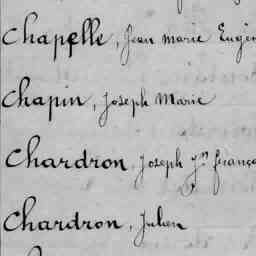 Chapelle, Jean marie Eugèn
Chapin, Joseph Marie
Chardron, Joseph Jn franço
Chardron, Julien